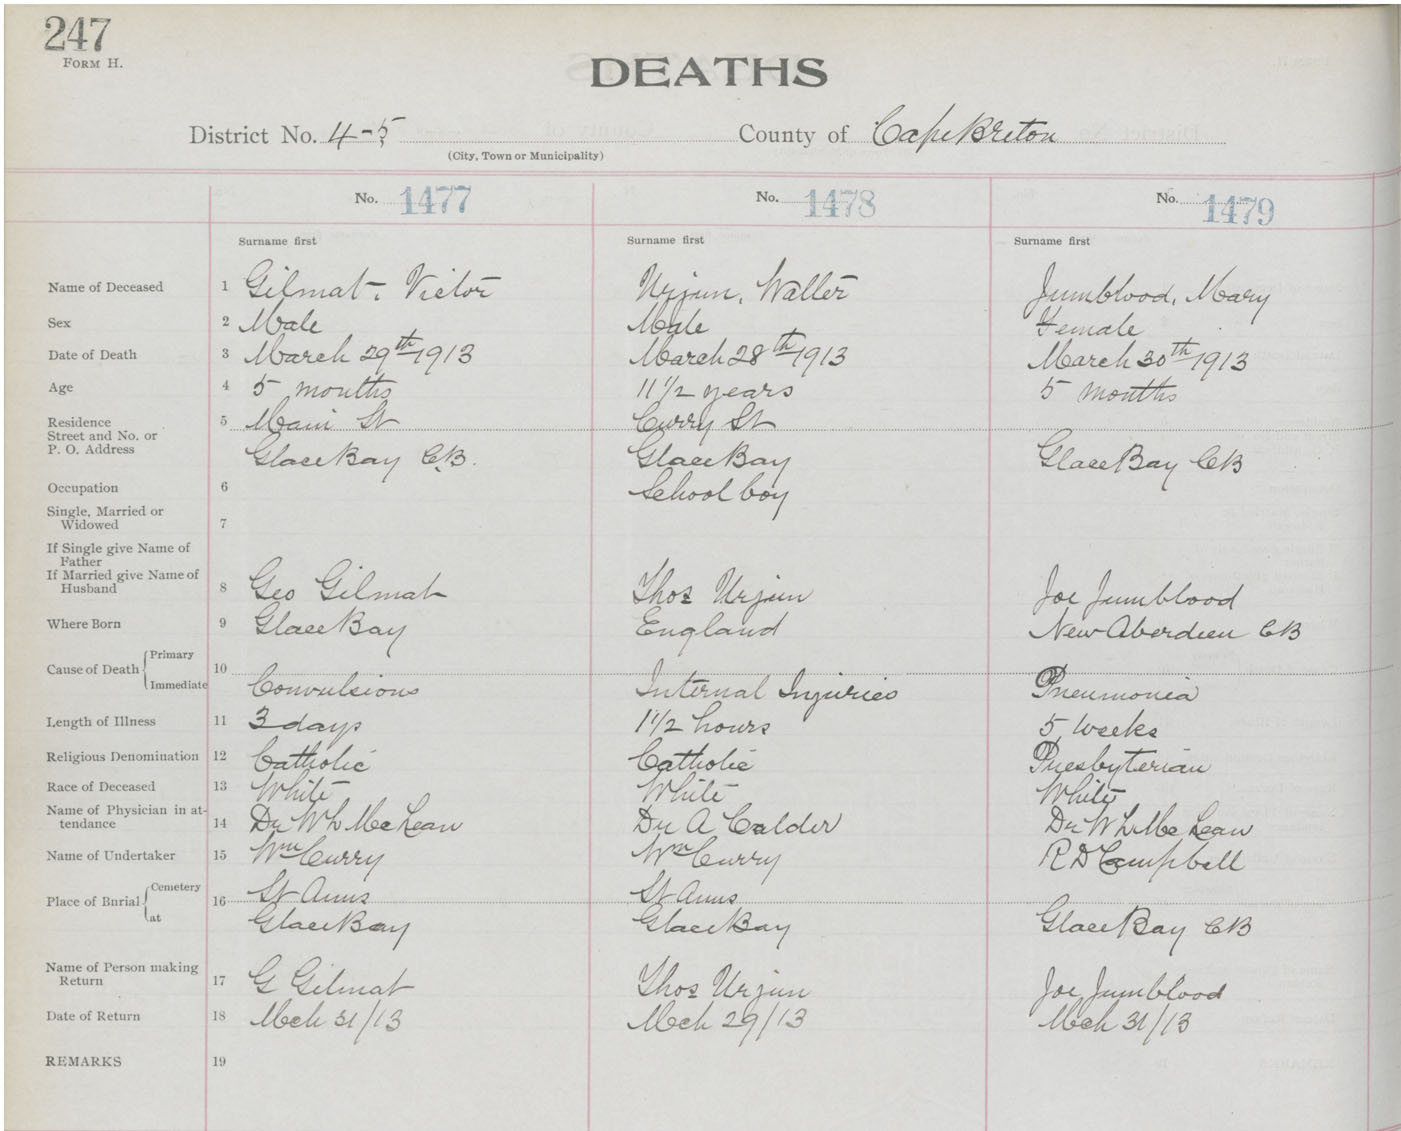 247
FORM H.
DEATHS
District No. 4-5 County of Cape Breton
(City, Town or Municipality)
No. 1477 No. 1478 No. 1479
Surname first Surname first Surname first
Name of Deceased 1 Gilmat, Victor Urjun, Walter Jumblood, Mary
Sex 2 Male Male Female
Date of Death 3 March 29th 1913 March 28th 1913 March 30th 1913
Age 4 5 months 11 1/2 years 5 months
Residence 5 Main St Curry St
Street and No. or
P. O. Address Glace Bay C.B. Glace Bay Glace Bay CB
Occupation 6 School boy
Single, Married or
Widowed 7
If Single give Name of
Father
If Married give Name of
Husband 8 Geo Gilmat Thos Urjun Joe Jumblood
Where Born 9 Glace Bay England New Aberdeen CB
Cause of Death Primary 10
Immediate Convulsions Internal Injuries Pneumonia
Length of Illness 11 3 days 1 1/2 hours 5 weeks
Religious Denomination 12 Catholic Catholic Presbyterian
Race of Deceased 13 White White White
Name of Physician in at-
tendance 14 Dr W L McLean Dr A Calder Dr W L McLean
Name of Undertaker 15 Wm Curry Wm Curry R D Campbell
Place of Burial Cemetery 16 St Anns St Anns
at Glace Bay Glace Bay Glace Bay CB
Name of Person making
Return 17 G Gilmat Thos Urjun Joe Jumblood
Date of Return 18 Mch 31/13 Mch 29/13 Mch 31/13
REMARKS 19